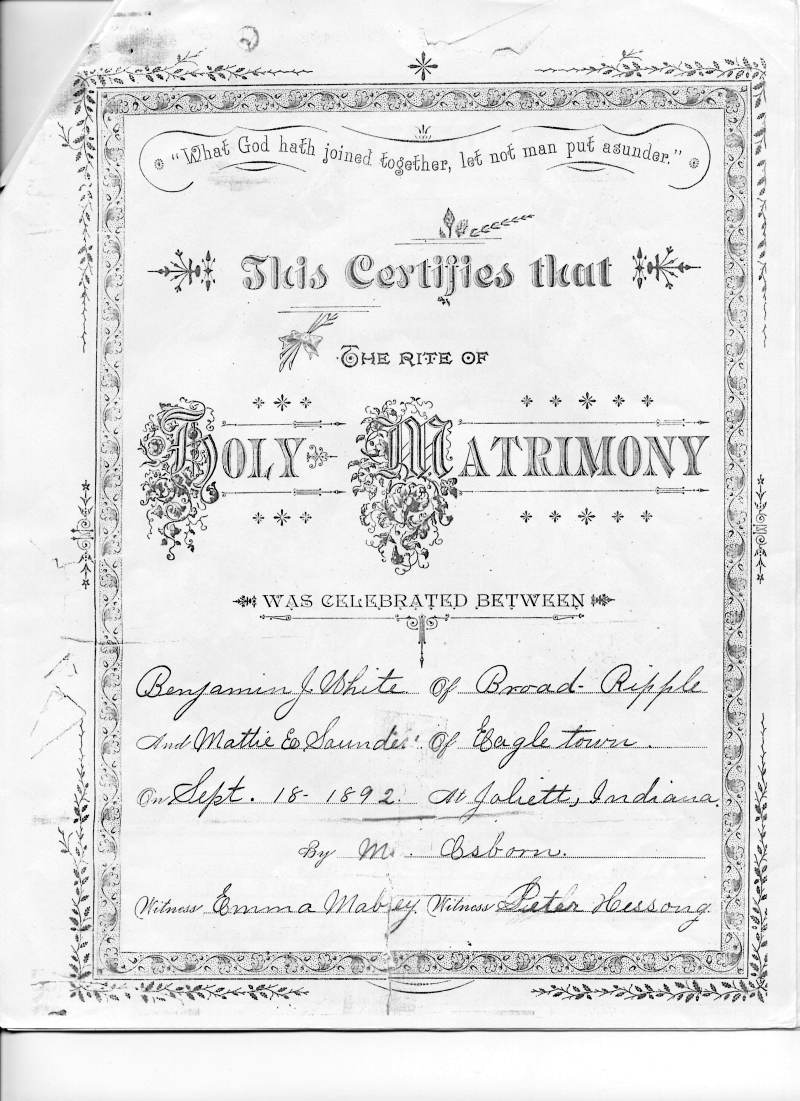 "What God hath joined together, let not man put asunder."
This Certifies that
THE RITE OF
HOLY MATRIMONY
WAS CELEBRATED BETWEEN
Benjamin J. White Of Broad-Ripple
And Mattie E Saunders Of Eagletown.
On Sept. 18-1892. At Joliett, Indiana.
By M. Osborn.
Witness Emma Mabrey. Witness Peter Hessong.